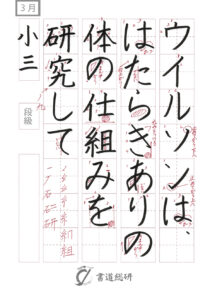 ウイルソンは、
はたらきありの
体の仕組みを
研究して
3月
小三
段級
書道総研